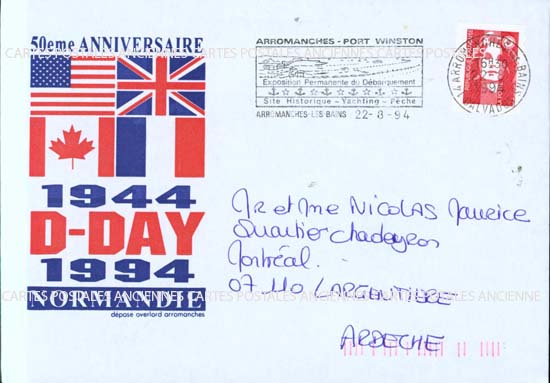 50eme ANNIVERSAIRE
1944
D-DAY
1994
NORMANDIE
dépose overlord arromanches
ARROMANCHES - PORT WINSTON
Exposition Permanente du Débarquement
Site Historique - Yachting - Pêche
ARROMANCHES-LES-BAINS 22-8-94
Mr et Mme NICOLAS Maurice
Quartier Chadeyron
Montréal.
07110 LARGENTIERE
ARDECHE
CARTES POSTALES ANCIENNES CARTES POSTALES ANCIENNES CARTES POSTALES ANCIENNES
CARTES POSTALES ANCIENNES CARTES POSTALES ANCIENNES CARTES POSTALES ANCIENNE